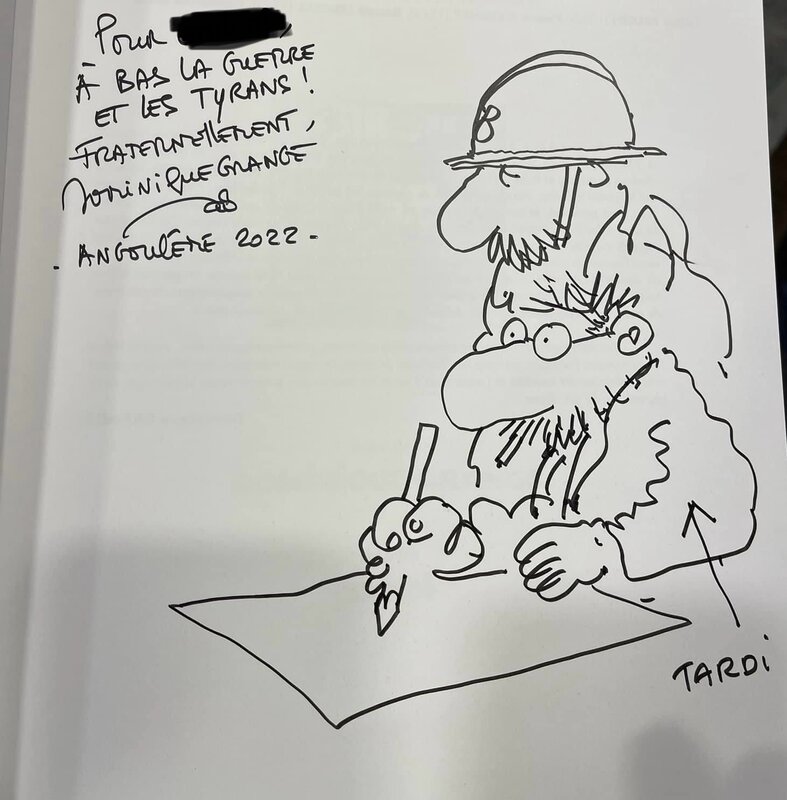 Pour
À BAS LA GUERRE
ET LES TYRANS !
FRATERNELLEMENT,
DOMINIQUE GRANGE
- ANGOULÊME 2022 -
TARDI